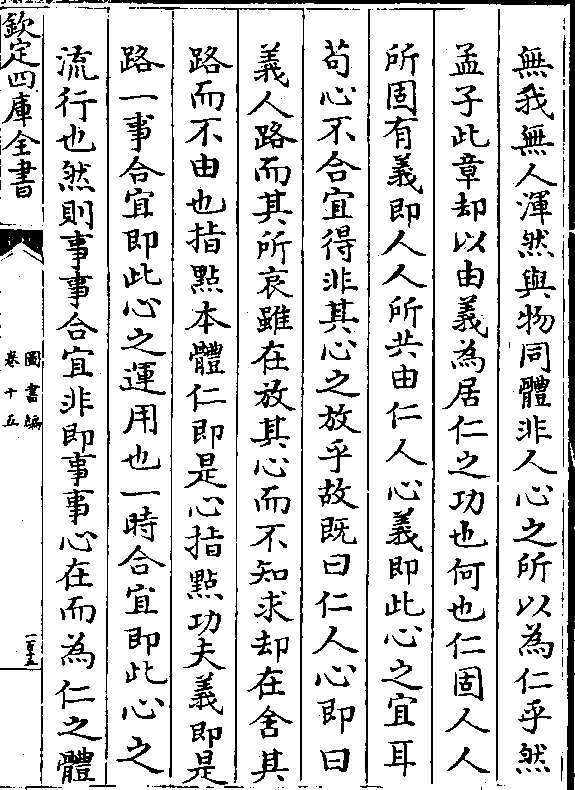 無我無人渾然與物同體非人心之所以為仁乎然
孟子此章却以由義為居仁之功也何也仁固人人
所固有義即人人所共由仁人心義即此心之宜耳
苟心不合宜得非其心之放乎故既曰仁人心即曰
義人路而其所哀雖在放其心而不知求却在舍其
路而不由也指點本體仁即是心指點功夫義即是
路一事合宜即此心之運用也一時合宜即此心之
流行也然則事事合宜非即事事心在而為仁之體
欽定四庫全書
圖書編
卷十五